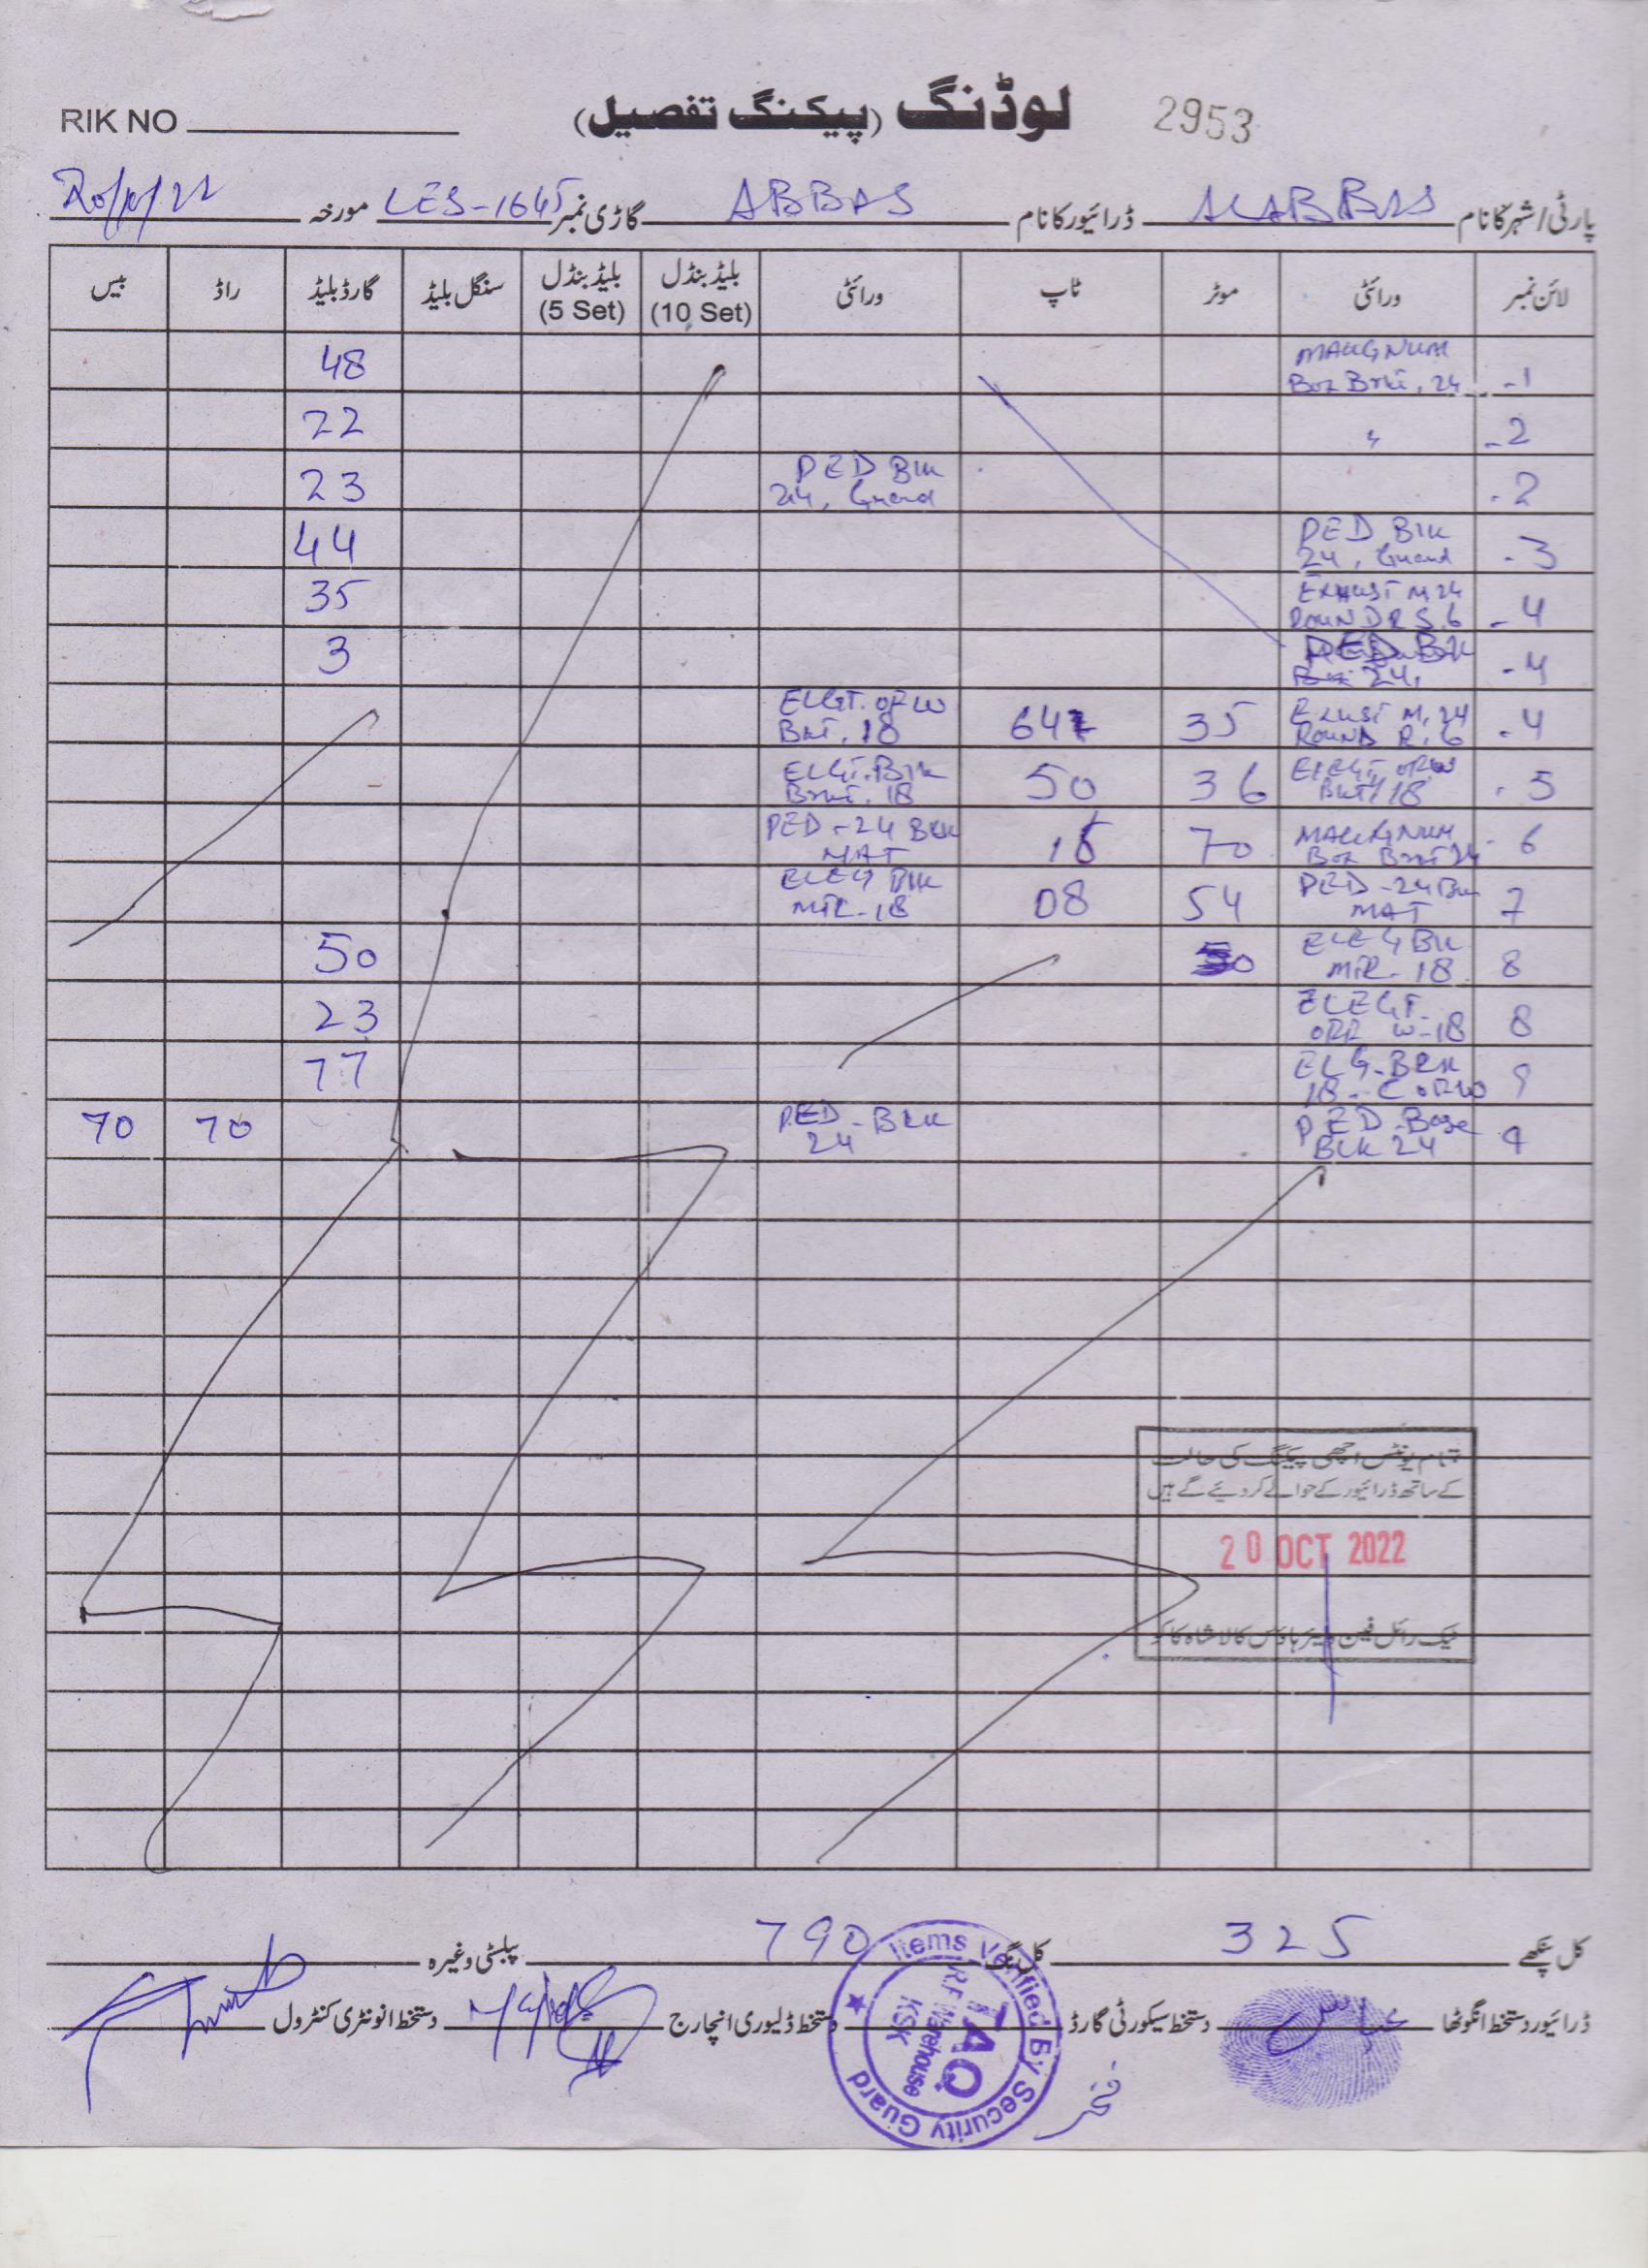 RIK NO
لوڈنگ (پیکنگ تفصیل)
2953
پارٹی/شہر کا نام ALABBAS ڈرائیور کا نام ABBAS گاڑی نمبر LES-1645 مورخہ 20/10/22
لائن نمبر ورائٹی موٹر ٹاپ ورائٹی بلیڈ بنڈل (10 Set) بلیڈ بنڈل (5 Set) سنگل بلیڈ گارڈ بلیڈ راڈ بیس
-1 MAUGNUM 24 48
-2 " 22
-2 PED Blk 24, Guard 23
-3 PED Blk 24, Guard 44
-4 EXHUST M 24 ROUND R S.6 35
-4 PED 24, 3
-4 M. 24 ROUND R. 6 35 64 ELGT. OFW 18
5 OFW 18 36 50 ELGT. Blk 18
6 MAUGNUM 24 70 15 PED-24 BLK MAT
7 PED-24 MAT 54 08 ELEG Blk MTL-18
8 ELEG Blk MTL-18 50 50
8 ELEGT. W-18 23
9 ELG-BLK 18-C OFW 77
9 PED-Base BLK 24 PED-BLK 24 70 70
تمام یونٹس اچھی پیکنگ کی حالت
کے ساتھ ڈرائیور کے حوالے کر دیئے گے ہیں
20 OCT 2022
ٹیک رائل فین ویئر ہاؤس کالا شاہ کاکو
کل پنکھے 325 کل نگ 790 پبلسٹی وغیرہ
ڈرائیور دستخط انگوٹھا عباس دستخط سیکورٹی گارڈ دستخط ڈلیوری انچارج دستخط انونٹری کنٹرول
Items Verified By Security Guard
TAQ
R.F Warehouse
KSK